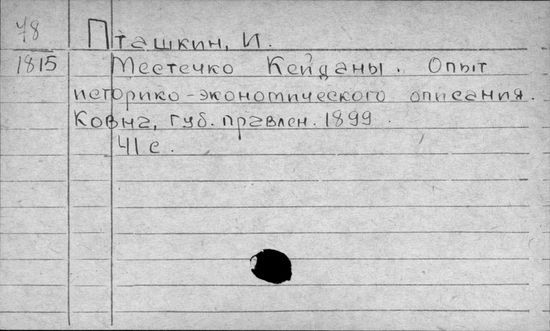 78 Пташкин, И.
1815 Местечко Кейданы. Опыт
историко-экономического описания.
Ковна, губ. правлен. 1899.
41 с.